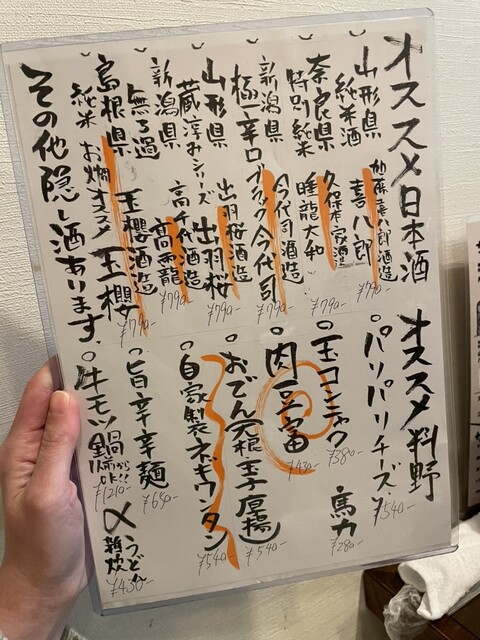 オススメ日本酒
山形県
純米酒
加藤喜八郎酒造
喜八郎
¥790-
奈良県
特別純米
久保本家酒造
睡龍大和
¥790-
新潟県
極辛口ブラック今代司
今代司酒造
¥790-
山形県
蔵淳みシリーズ
出羽桜酒造
出羽桜
¥790-
新潟県
無ろ過
高千代酒造
¥790-
島根県
純米 お燗オススメ
玉櫻酒造
玉櫻
¥790-
その他隠し酒あります。
オススメ料野
パリパリチーズ
¥540-
玉コンニャク
¥380-
馬力
¥280-
肉豆富
¥430-
おでん(大根 玉子 厚揚)
¥540-
自家製ネギワンタン
¥540-
旨辛辛麺
¥650-
牛モツ鍋
¥1210-
〆
うどん
雑炊
¥430-